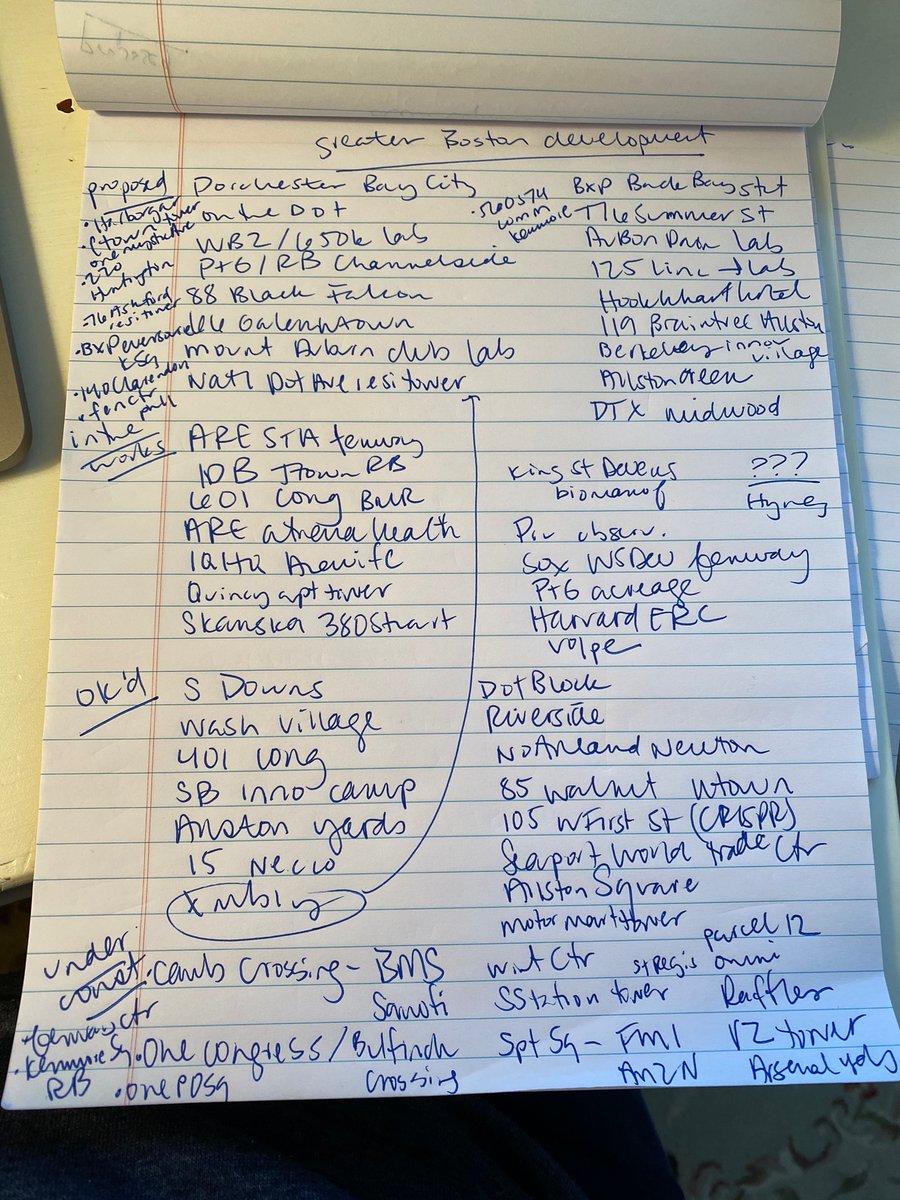 greater Boston development
proposed
Dorchester Bay City
on the Dot
WB2 / 650k lab
P+G / RB Channelside
88 Black Falcon
66 Galen
mount Auburn club lab
Natl Dot Ave resi tower
· Harborgar
one mystic Ave
· 220
Huntington
· 76 Ashford
resi tower
· BXP eversource
KSq
· 140 Clarendon
· 560 574
comm
kenmore
BXP Back Bay St
776 Summer St
AvBon lab
125 Linc → lab
Hook hotel
119 Braintree Allston
Berkeley innov
village
Allston Green
DTX midwood
in the
works
ARE STIA fenway
IDB Jtown RB
601 Cong BMR
ARE athena health
Alewife
Quincy apt tower
Skanska 380 Stuart
King St Devens
biomanuf
???
Hynes
Pru observ.
Sox WSDev fenway
P+G acreage
Harvard ERC
Volpe
OK'd
S Downs
Wash Village
401 Cong
SB inno camp
Allston yards
15 Necco
xmbly
Dot Block
Riverside
Northland Newton
85 walnut wtown
105 W First St (CRISPR)
Seaport World trade Ctr
Allston Square
motor mart tower
under
const
· Camb Crossing - BMS
Sanofi
· fenway ctr
· Kenmore Sq
RB
· One Congress / Bulfinch
Crossing
· One POSq
Wint Ctr
parcel 12
St Regis omni
SStation tower
Raffles
Spt Sq - FM1
VZ tower
AMZN
Arsenal yds